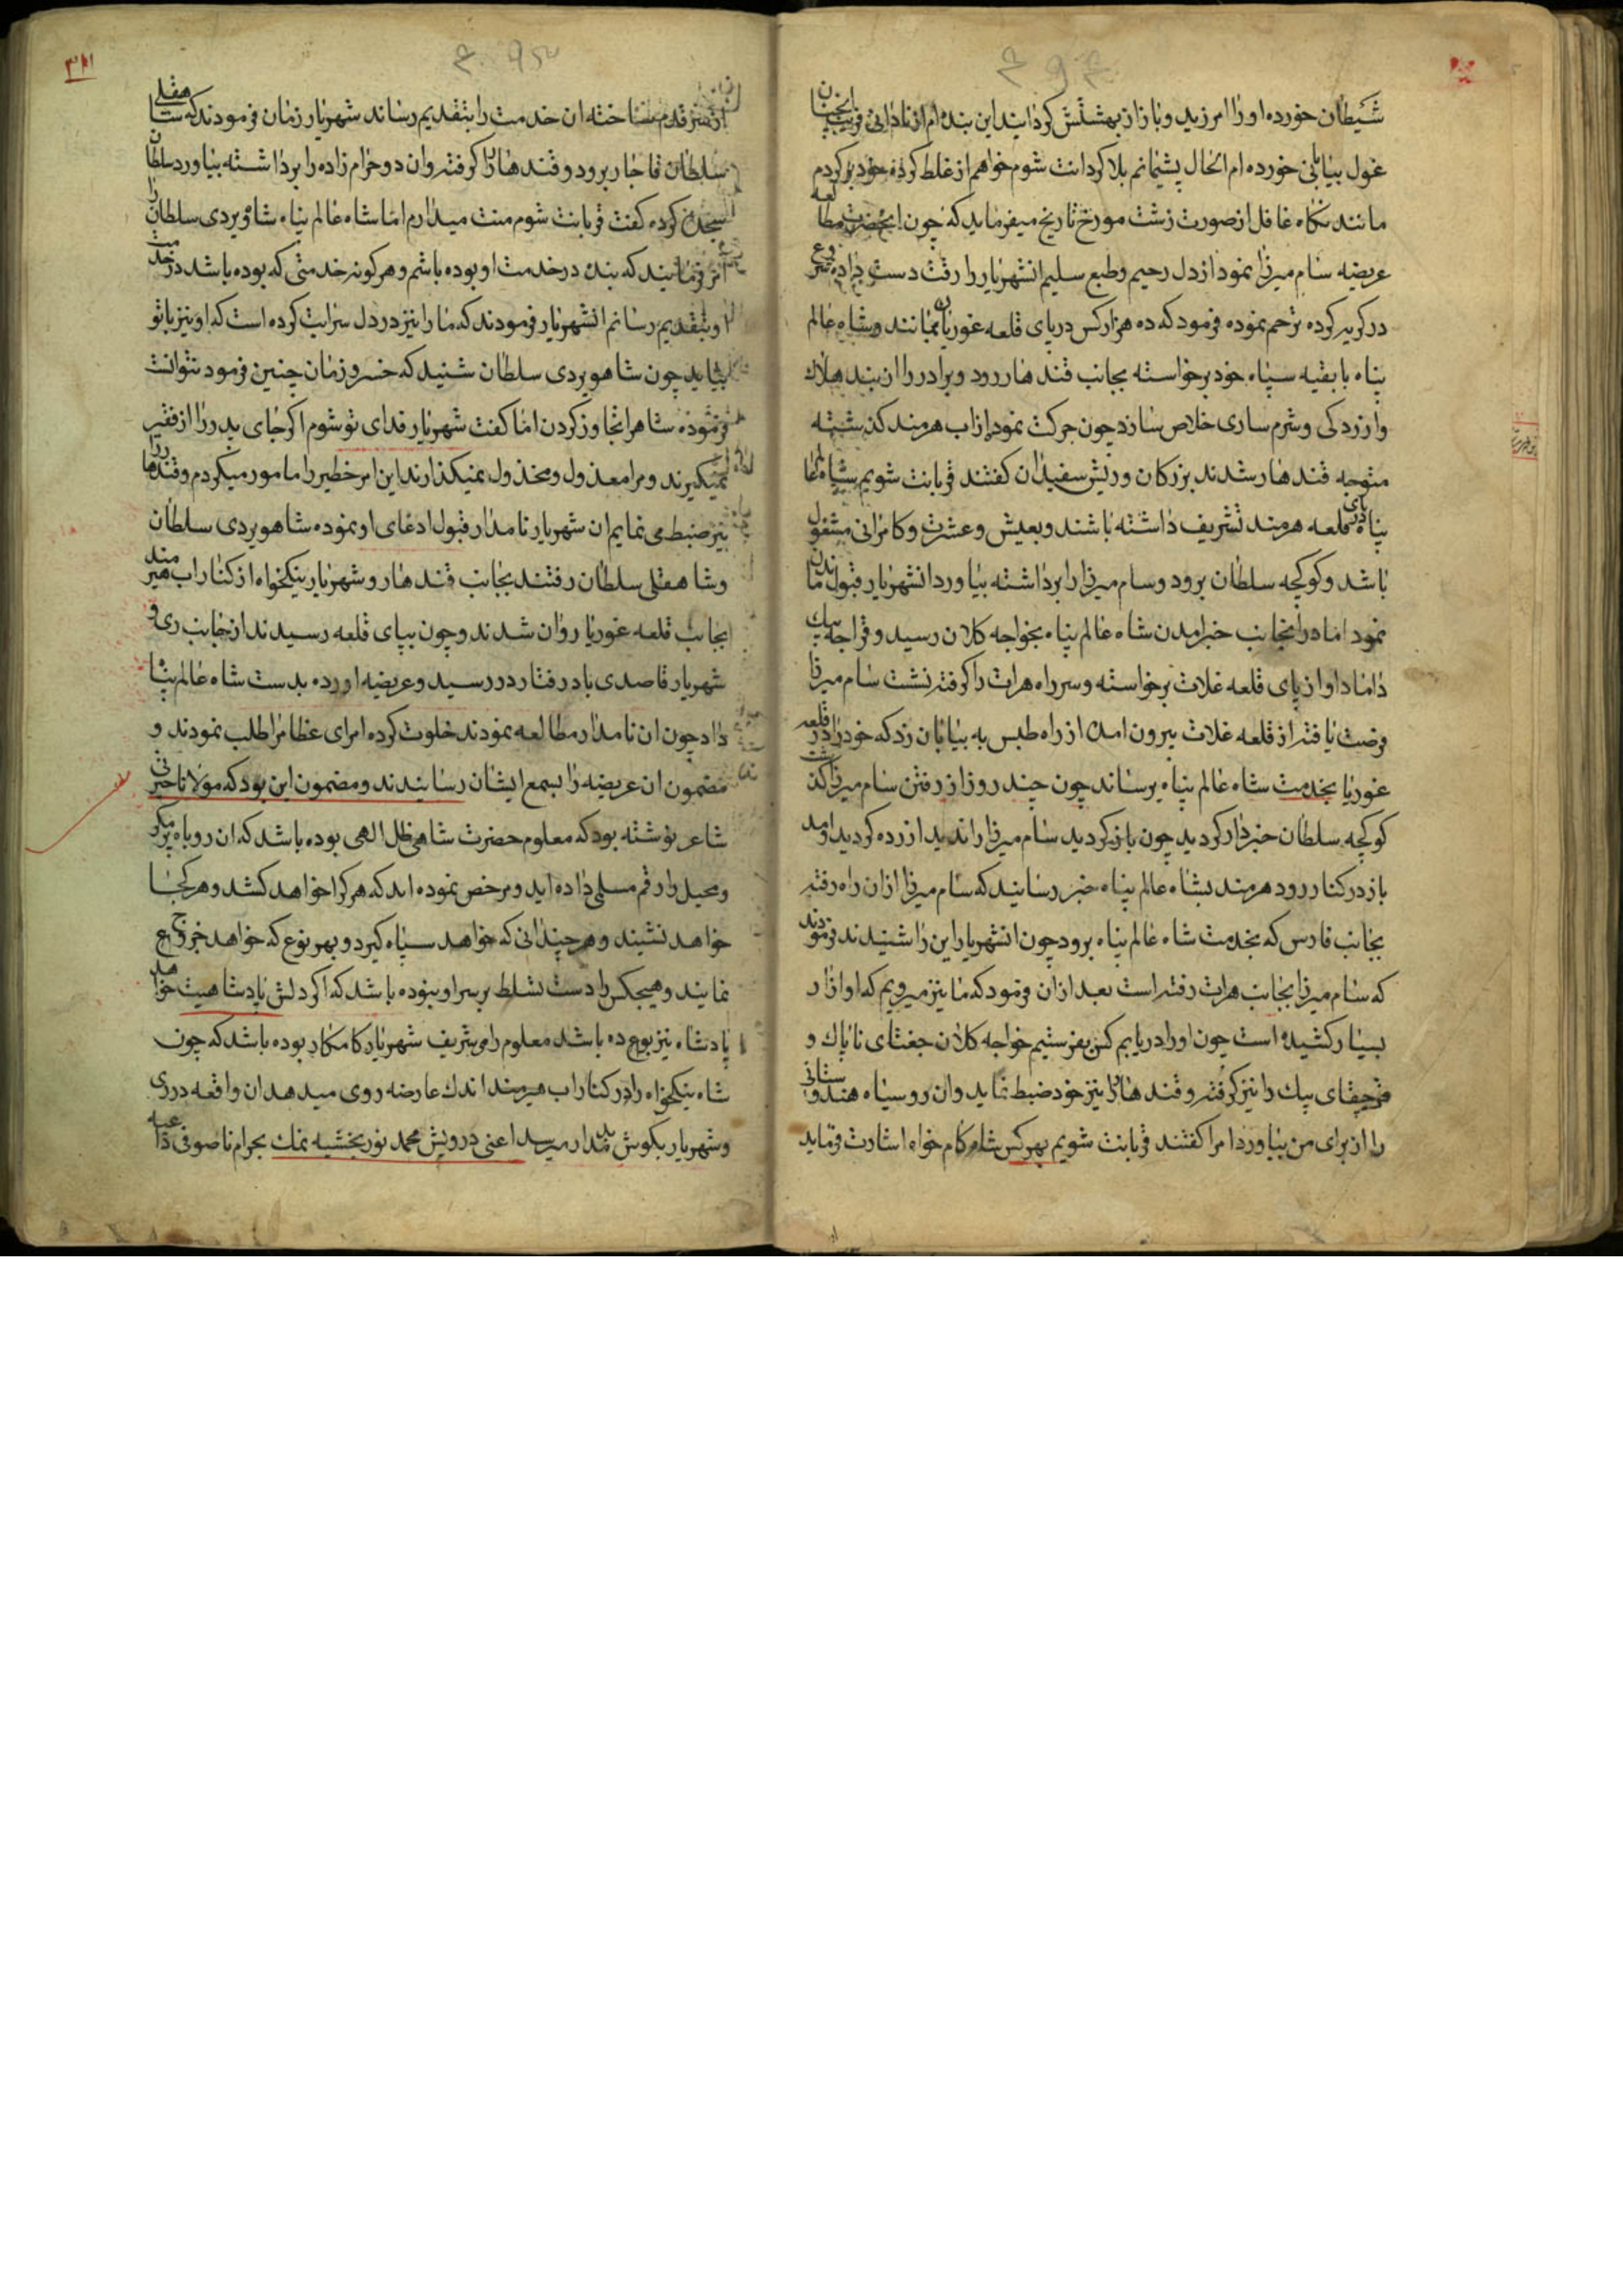 شیطان خورده او را امرزید و باز از بهشتش کردانید این بنده ام از نادانی فریب انچنان
غول بیابانی خورده ام الحال پشیمانم بلا کردانت شوم خواهم از غلط کرده خود بر کردم
مانند نکاه غافل از صورت زشت مورخ تاریخ میفرماید که چون انحضرت مطالعه
عریضه سام میرزا نمود از دل رحیم و طبع سلیم انشهریار را رقت دست داده شروع
در کریه کرده ترحم نموده فرمود که ده هزار کس در پای قلعه غوریان بمانند و شاه عالم
پناه با بقیه سپاه خود برخواسته بجانب قندهار رود و برادر را از بند هلاک
و ازردکی و شرم ساری خلاص سازد چون حرکت نمود از اب هرمند کذشته
متوجه قندهار شدند بزرکان و ریش سفیدان کفتند قربانت شویم شاه عالم
پناه در پای قلعه هرمند تشریف داشته باشند و بعیش و عشرت و کامرانی مشغول
باشد و کوکجه سلطان برود و سام میرزا را برداشته بیاورد انشهریار قبول
نمود اما در انجانب خبر امدن شاه عالم پناه بخواجه کلان رسید و قراجه بیک
داماد او از پای قلعه غلات برخواسته و سر راه هرات را کرفته نشت سام میرزا
فرصت یافته از قلعه غلات بیرون امده از راه طبس به بیابان زد که خود را در قلعه
غوریا بخدمت شاه عالم پناه برساند چون چند روز از رفتن سام میرزا کذشت
کوکجه سلطان خبردار کردید چون باز کردید سام میرزا را ندید ازرده کردید امد
باز در کنار رود هرمند بشاه عالم پناه خبر رسانید که سام میرزا از ان راه رفته
بجانب فارس که بخدمت شاه عالم پناه برود چون انشهریار این را شنیدند فرمودند
که سام میرزا بجانب هرات رفته است بعد از ان فرمود که ما نیز میرویم که او ازار
بسیار کشیده است چون او را دریابم کس بفرستیم خواجه کلان جغتای ناپاک و
قرجقای بیک را نیز کرفته و قندهار را نیز خود ضبط نماید وان روسیاه هندوستانی
را از برای من بیاورد امرا کفتند قربانت شویم بهر کس شاه کام خواه اشارت فرماید
از سر قدم ساخته ان خدمت را بتقدیم رساند شهریار زمان فرمودند که شاهقلی
سلطان قاجار برود و قندهار را کرفته و ان دو حرام زاده را برداشته بیاورد سلطان
سجده کرده کفت قربانت شوم منت میدارم اما شاه عالم پناه شاویردی سلطان را
امر فرمانیند که بنده در خدمت او بوده باشم و هر کونه خدمتی که بوده باشد در خدمت
او بتقدیم رسانم انشهریار فرمودند که ما را نیز در دل سرایت کرده است که او نیز با تو
بیاید چون شاهویردی سلطان شنید که خسرو زمان چنین فرمود نتوانت
فرموده شاه را تجاوز کردن اما کفت شهریار فدای تو شوم اکر جای پدر را از فقیر
نمیکیرند و مرا معذول و مخذول نمیکذارند این امر خطیر را مامور میکردم و قندهار را
نیز ضبط می نمایم ان شهریار نامدار قبول ادعای او نموده شاهویردی سلطان
و شاهقلی سلطان رفتند بجانب قندهار و شهریار نیکخواه از کنار اب هیرمند
بجانب قلعه غوریا روان شدند و چون بپای قلعه رسیدند از جانب ری و
شهریار قاصدی باد رفتار در رسید و عریضه اورده بدست شاه عالم پناه
داد چون ان نامدار مطالعه نمودند خلوت کرده امرای عظام را طلب نمودند و
مضمون ان عریضه را بسمع ایشان رسانیدند و مضمون این بود که مولانا حیرتی
شاعر نوشته بود که معلوم حضرت شاهی ظل الهی بوده باشد که ان روباه پر مکر
و محیل را رقم مسلمی داده اید و مرخص نموده اند که هر کرا خواهد کشد و هر کجا
خواهد نشیند و هر چندانی که خواهد سپاه کیرد و بهر نوع که خواهد خرج
نمایند و هیچکس را دست تسلط بر سر او نبوده باشد که اکر دلش پادشاهیت خواهد
پادشاه نیز بوع ده باشد معلوم رای شریف شهریار کامکار بوده باشد که چون
شاه نیکخواه را در کنار اب هیرمند اندک عارضه روی میدهد ان واقعه در ری
و شهریار بکوش ند مدار میرسد اعنی درویش محمد نوربخشیه نمک بحرام ناصوفی داعیه